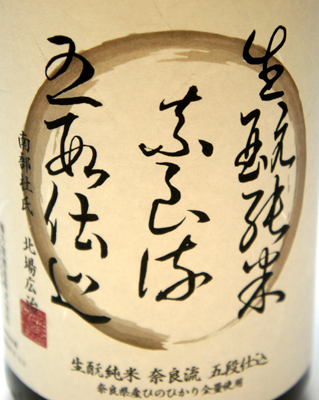 生酛純米
奈良流
五段仕込
南部杜氏 北場広治
生酛純米 奈良流 五段仕込
奈良県産ひのひかり全量使用